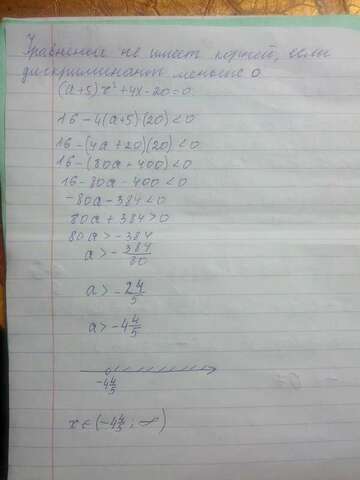 Уравнение не имеет корней, если
дискриминант меньше 0
(a+5)x²+4x-20=0
16-4(a+5)(20)<0
16-(4a+20)(20)<0
16-(80a+400)<0
16-80a-400<0
-80a-384<0
80a+384>0
80a>-384
a>-384/80
a>-24/5
a>-4 4/5
-4 4/5
x∈(-4 4/5; ∞)